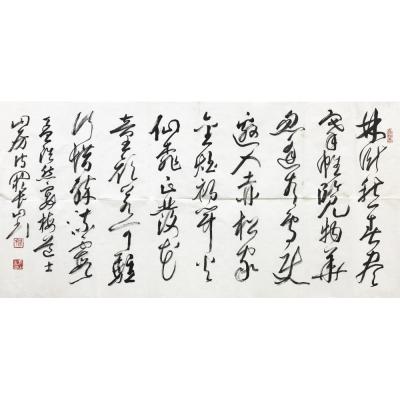 林卧愁春尽
搴帷览物华
忽逢青鸟使
邀入赤松家
金灶初开火
仙桃正发花
童颜若可驻
何惜醉流霞
孟浩然宴梅道士
山房诗